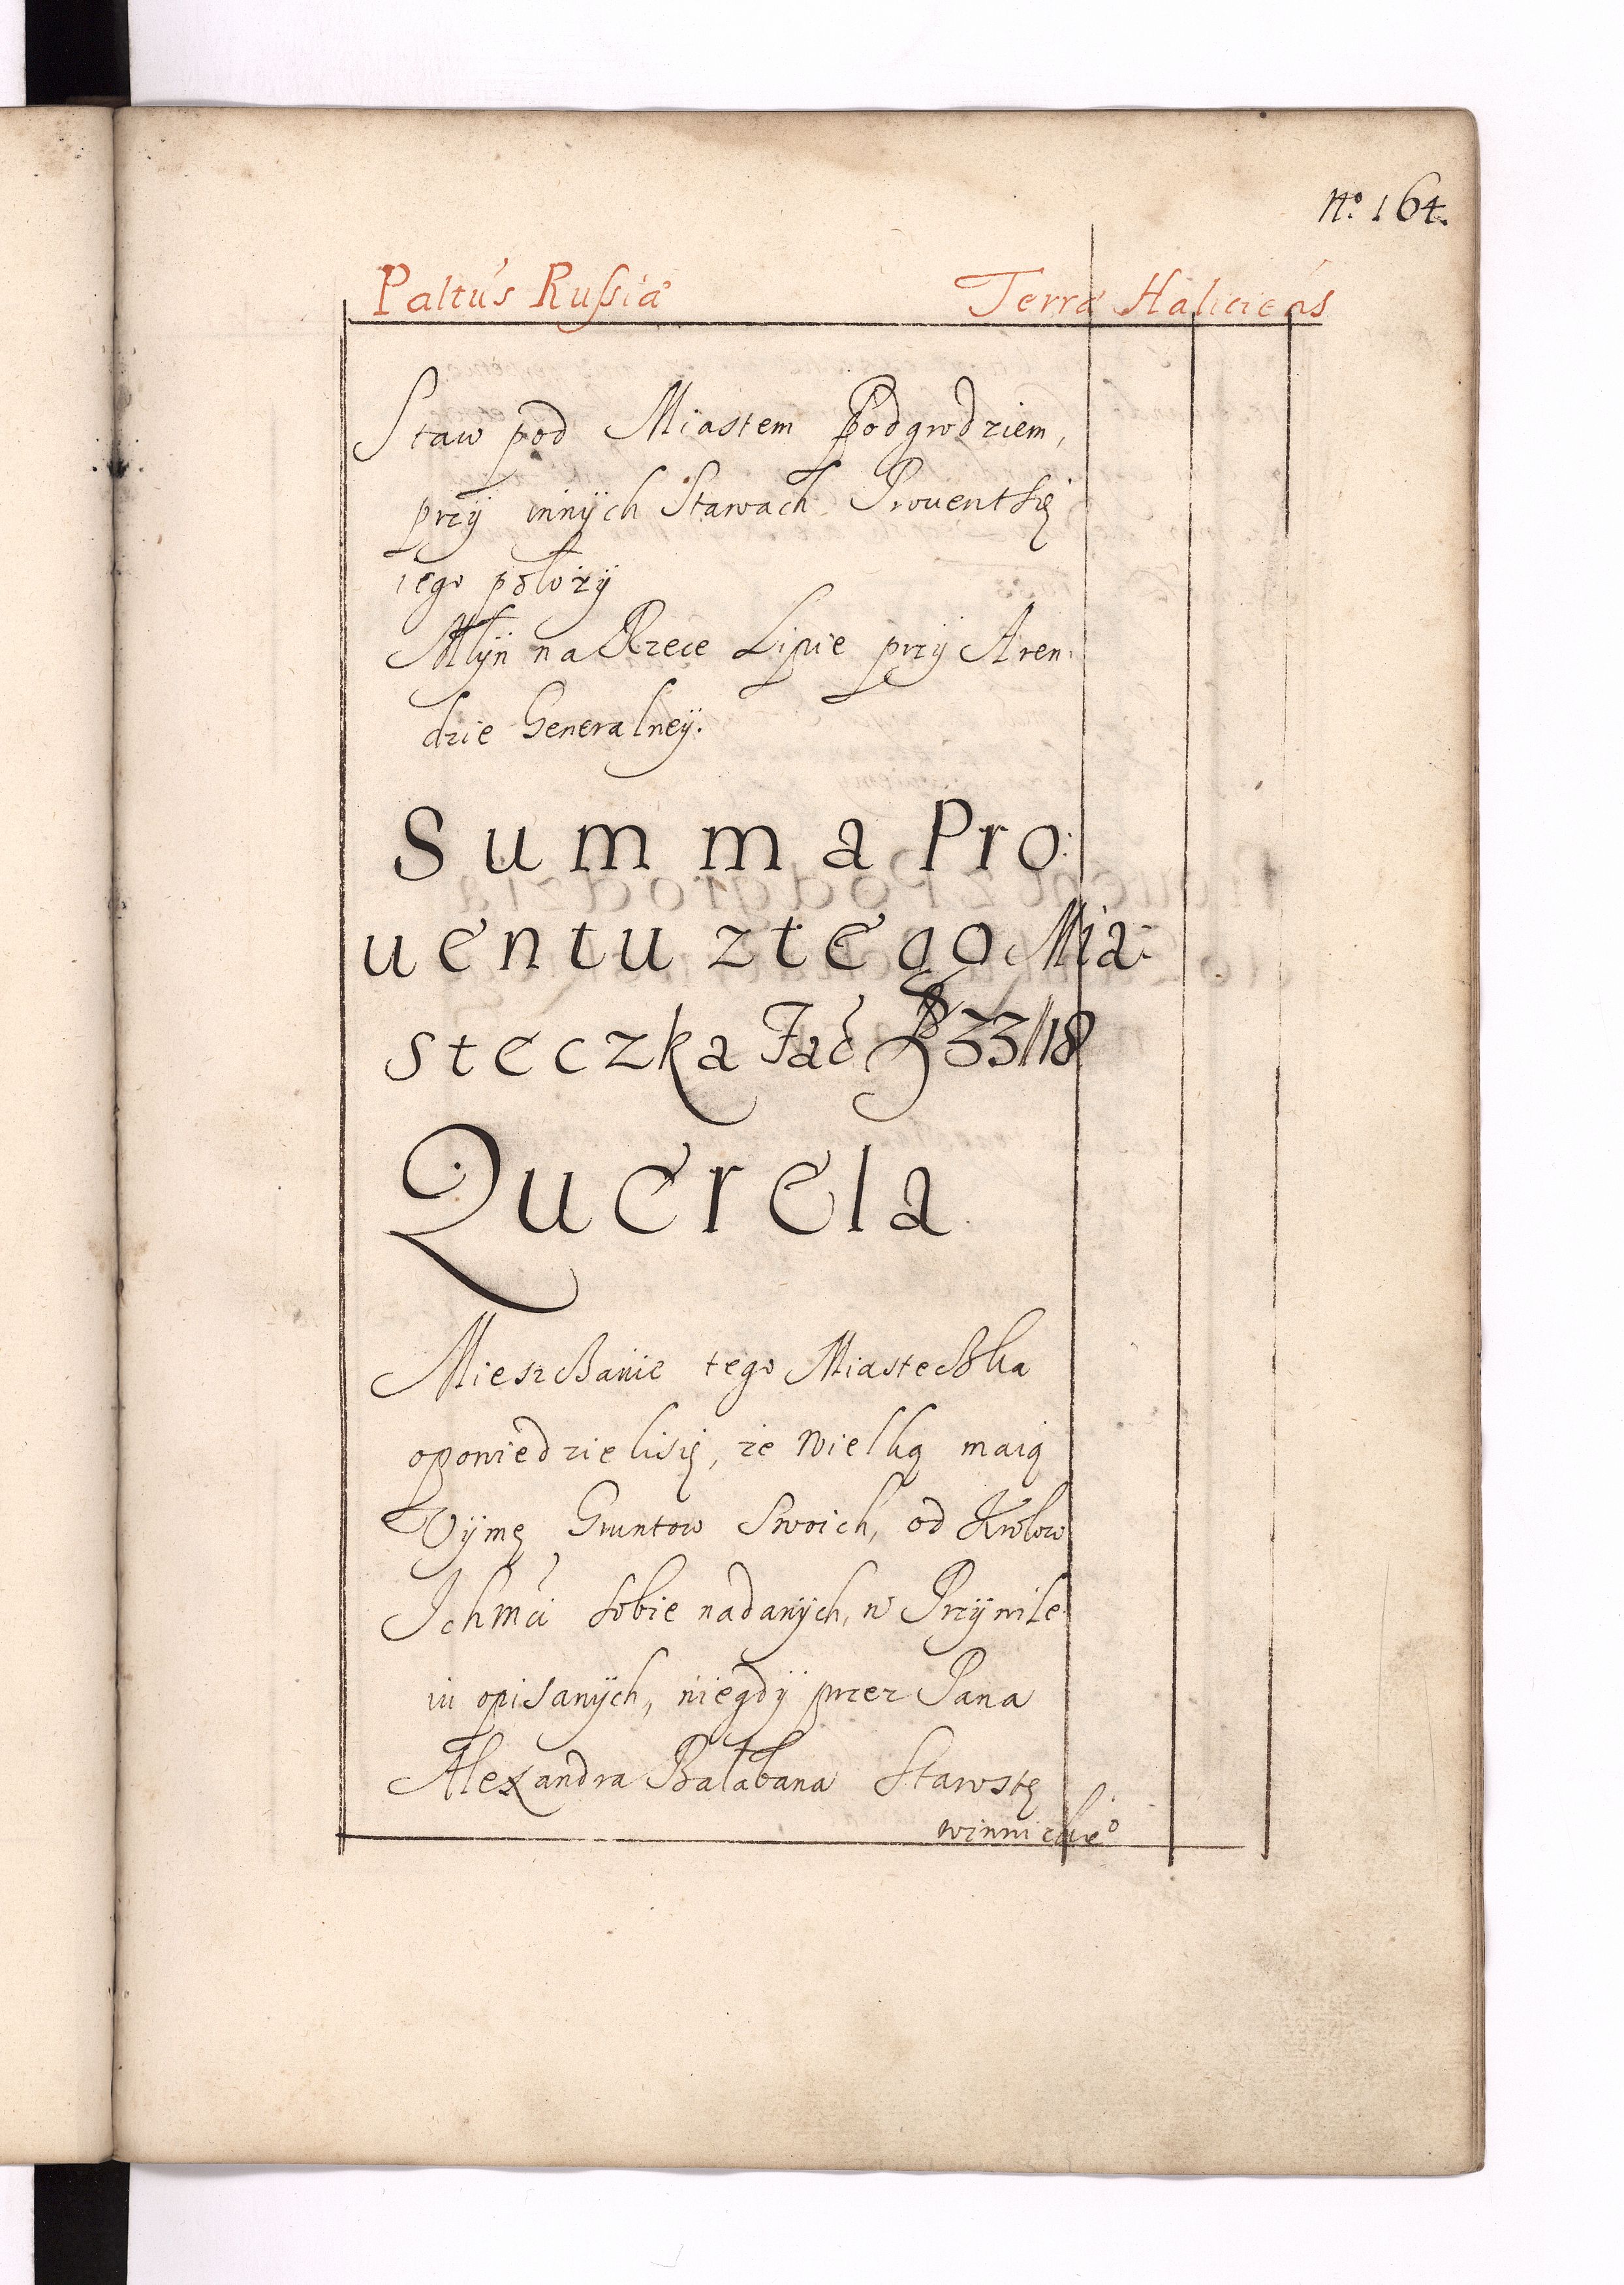 No. 164.
Paltus Russiæ Terræ Haliciens
Staw pod Miastem Podgrodziem,
przÿ innÿch Stawach Prouent się
iego połozÿ
Młÿn na Rzece Lipie przÿ Aren:
dzie Generalneÿ.
Summa Pro:
uentu z tego Mia:
steczka Facit 33//18
Querela
Mieszczanie tego Miasteczka
opowiedzieli się, ze wielką maią
Vÿmę Gruntow Swoich, od Krolow
Ichmći sobie nadanÿch, w Przÿwile:
iu opisanÿch, niegdÿ przez Pana
Alexandra Bałabana Starostę
winnickieo